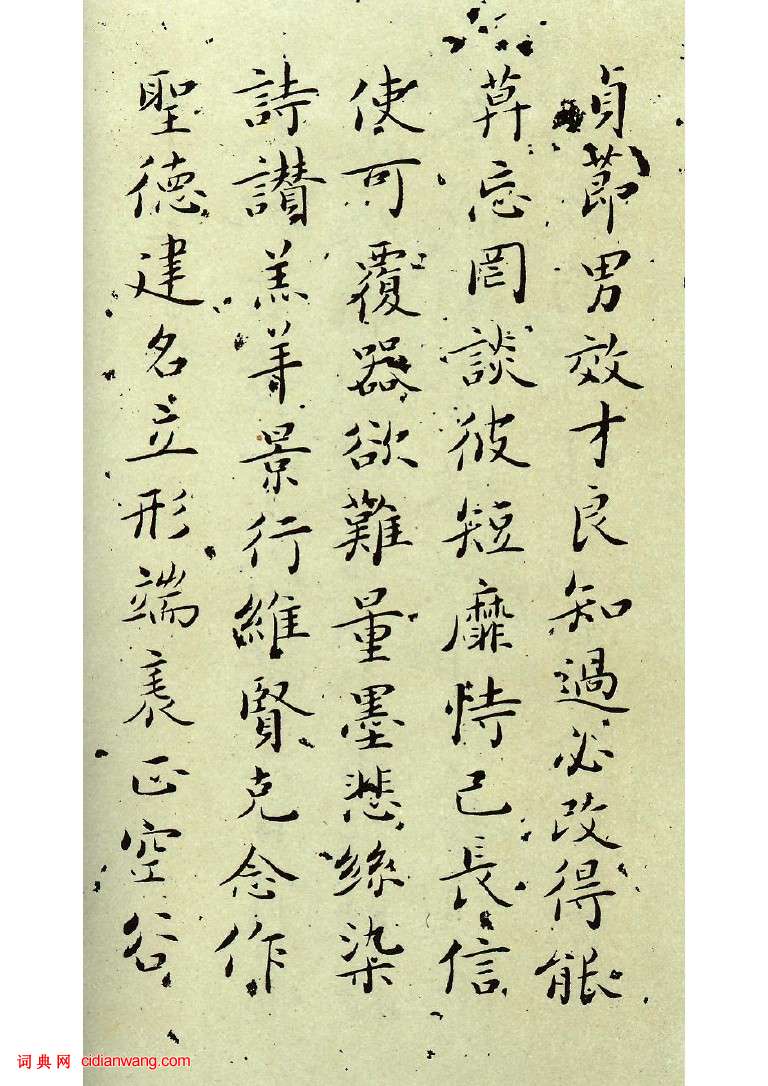 貞節男效才良知過必改得能
莫忘罔談彼短靡恃己長信
使可覆器欲難量墨悲絲染
詩讃羔羊景行維賢克念作
聖德建名立形端表正空谷
词典网 cidianwang.com